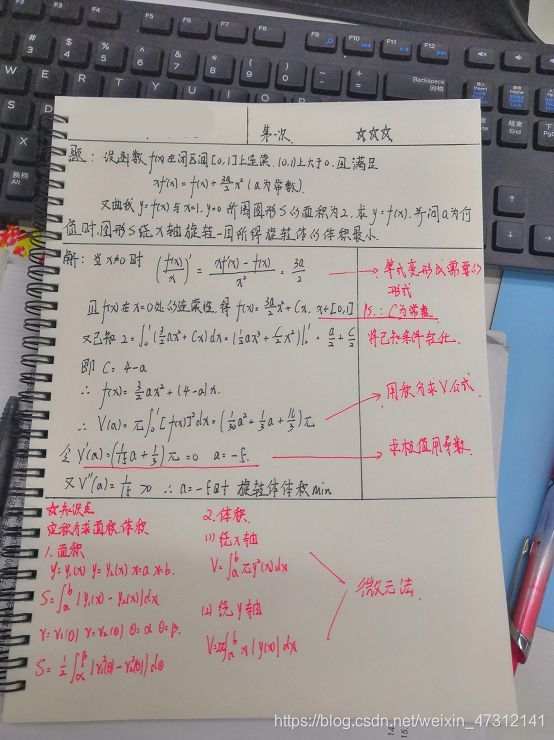 第一次 ☆☆☆
题: 设函数 f(x) 在闭区间 [0,1] 上连续, (0,1) 上大于0, 且满足
xf'(x) = f(x) + 3a/2 x² (a为常数).
又曲线 y=f(x) 与 x=1, y=0 所围图形S的面积为2, 求 y=f(x), 并问a为何
值时, 图形S绕x轴旋转一周所得旋转体的体积最小.
解: 当 x≠0 时 (f(x)/x)' = (xf'(x) - f(x))/x² = 3a/2
等式变形成需要的
形式
且 f(x) 在 x=0 处的连续性, 得 f(x) = 3a/2 x² + Cx, x∈[0,1]
P.s.: C为常数
又已知 2 = ∫₀¹ (3/2 ax² + Cx)dx = (1/2 ax³ + C/2 x²)|₀¹ = a/2 + C/2
将已知条件转化.
即 C = 4-a
∴ f(x) = 3/2 ax² + (4-a)x.
用积分求V公式.
∴ V(a) = π∫₀¹ [f(x)]² dx = (1/30 a² + 1/3 a + 16/3)π
令 V'(a) = (1/15 a + 1/3)π = 0 a = -5.
求极值用导数.
又 V''(a) = 1/15 > 0 ∴ a = -5时 旋转体体积min
☆知识点
定积分求面积、体积
1. 面积
y=y₁(x) y=y₂(x) x=a x=b.
S = ∫ₐᵇ |y₁(x) - y₂(x)|dx
r=r₁(θ) r=r₂(θ) θ=α θ=β.
S = 1/2 ∫_α^β |r₁²(θ) - r₂²(θ)|dθ
2. 体积
(1) 绕x轴
V = ∫ₐᵇ πy²(x)dx
(2) 绕y轴
V = 2π∫ₐᵇ x|y(x)|dx
微元法.
https://blog.csdn.net/weixin_47312141